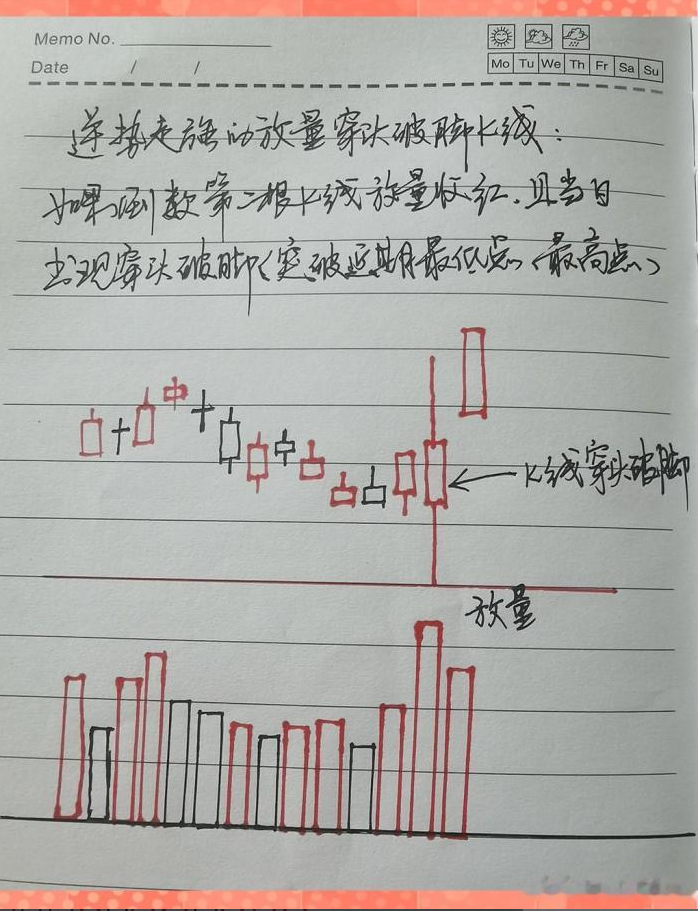 Memo No.
Date / /
Mo Tu We Th Fr Sa Su
逆势走强的放量穿头破脚K线:
如果倒数第二根K线放量收红.且当日
出现穿头破脚(突破近期最低点、最高点、)
K线穿头破脚
放量